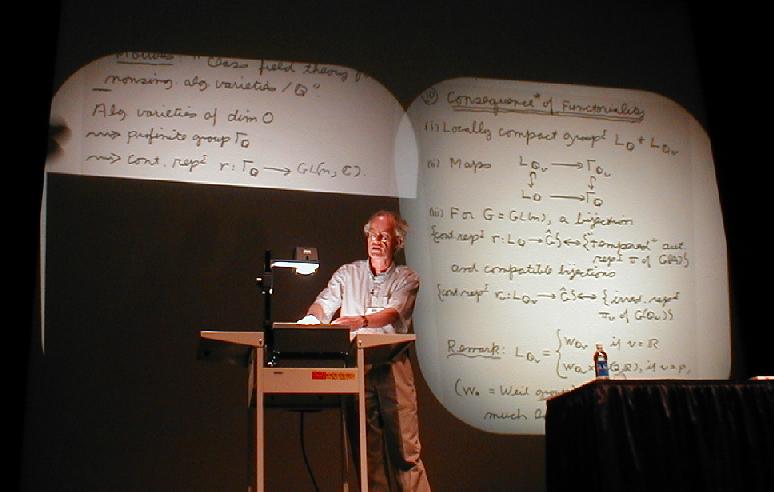 "Class field theory
nonsing. alg varieties / Q".
Alg varieties of dim 0
⇝ profinite group Γ_Q
⇝ cont. rep^s r: Γ_Q → GL(n, C).
Consequence* of Functoriality
(i) Locally compact group^s L_Q + L_{Q_v}
(ii) Maps L_{Q_v} → Γ_{Q_v}
L_Q → Γ_Q
(iii) For G = GL(n), a bijection
{cont. rep^s r: L_Q → Ĝ} ↔ {"tempered" aut.
rep^s π of G(A)}
and compatible bijections
{cont. rep^s r_v: L_{Q_v} → Ĝ} ↔ {irred. rep^s
π_v of G(Q_v)}
Remark: L_{Q_v} = { W_{Q_v} if v = R
W_{Q_v} × (2, R), if v = p,
(W_• = Weil group
much